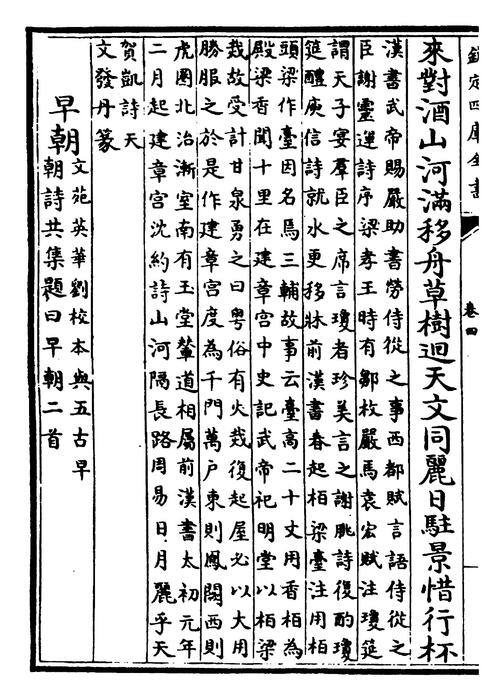 欽定四庫全書
卷四
來對酒山河滿移舟草樹迴天文同麗日駐景惜行杯
漢書武帝賜嚴助書勞侍從之事西都賦言語侍從之
臣謝靈運詩序梁孝王時有鄒枚嚴馬袁宏賦注瓊筵
謂天子宴羣臣之席言瓊者珍美言之謝朓詩復酌瓊
筵醴庾信詩就水更移牀前漢書春起柏梁臺注用柏
頭梁作臺因名焉三輔故事云臺高二十丈用香柏為
殿梁香聞十里在建章宮中史記武帝祀明堂以柏梁
烖故受計甘泉勇之曰粤俗有火烖復起屋必以大用
勝服之於是作建章宮度為千門萬户東則鳳闕西則
虎圈北治漸室南有玉堂輦道相屬前漢書太初元年
二月起建章宮沈約詩山河隔長路周易日月麗乎天
賀凱詩天
文發丹篆
早朝
文苑英華劉校本與五古早
朝詩共集題曰早朝二首